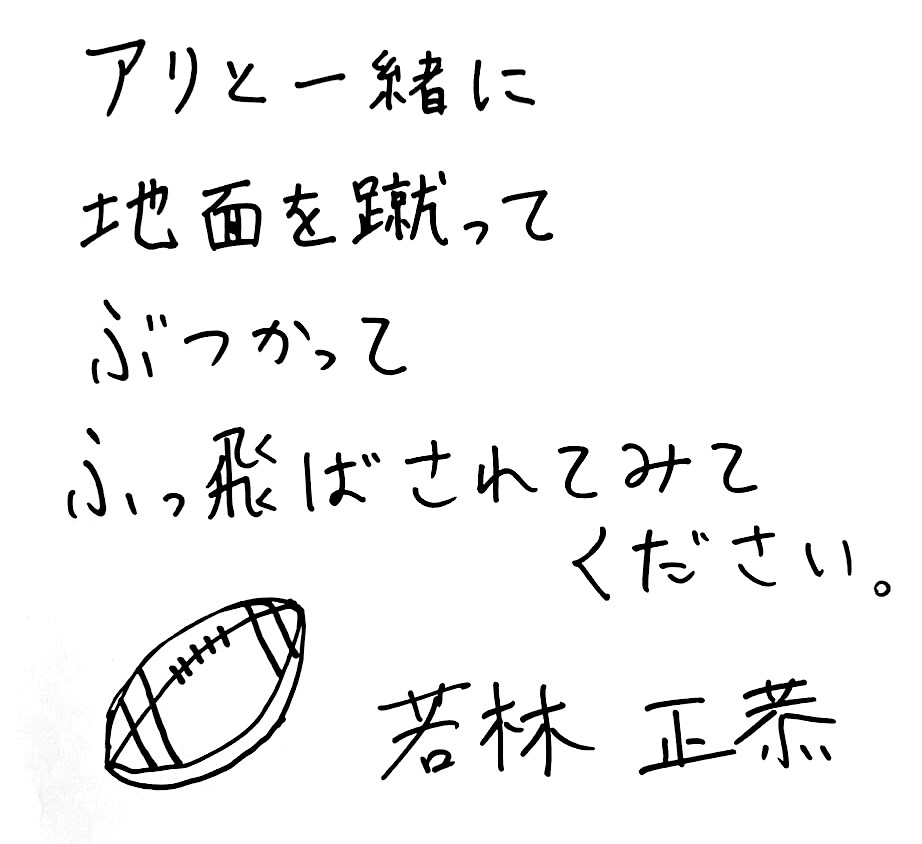 アリと一緒に
地面を蹴って
ぶつかって
ふっ飛ばされてみて
ください。
若林 正恭